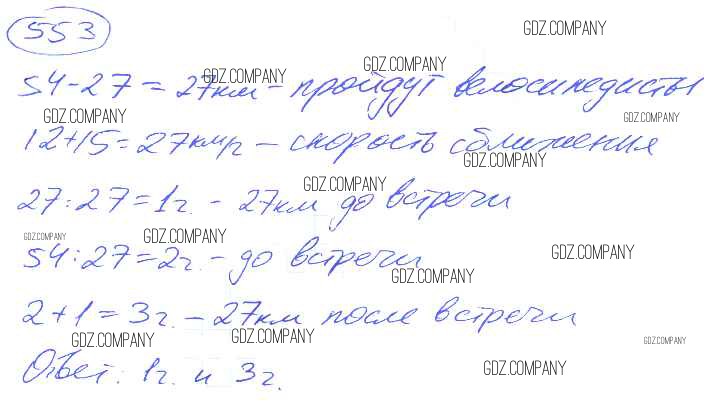 553
GDZ.COMPANY
GDZ.COMPANY
GDZ.COMPANY
54-27 = 27км - пройдут велосипедисты
GDZ.COMPANY
GDZ.COMPANY
12+15=27км/ч - скорость сближения
GDZ.COMPANY
GDZ.COMPANY
27:27=1ч. - 27км до встречи
GDZ.COMPANY
GDZ.COMPANY
GDZ.COMPANY
54:27=2ч. - до встречи
GDZ.COMPANY
2+1=3ч. - 27км после встречи
GDZ.COMPANY
GDZ.COMPANY
GDZ.COMPANY
Ответ: 1ч. и 3ч.
GDZ.COMPANY